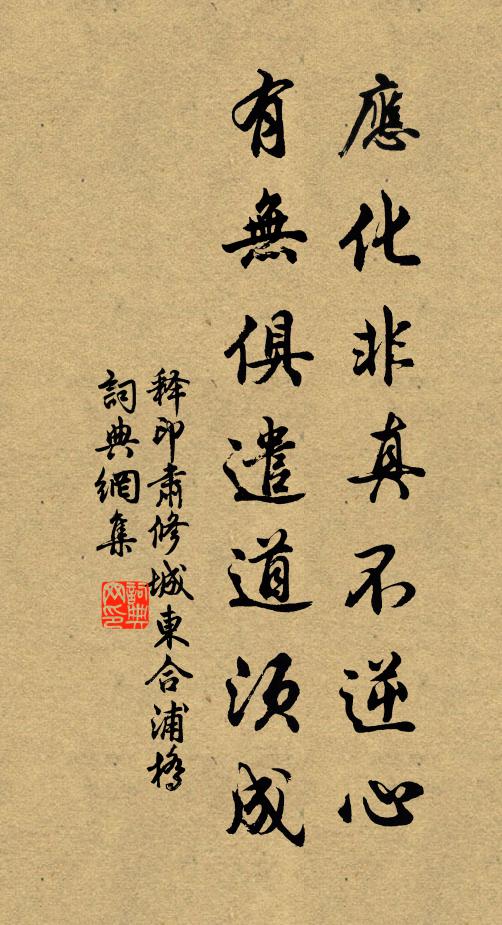 應化非真不逆心
有無俱遣道須成
释印肅修城東合浦橋
詞典網集
詞典網印